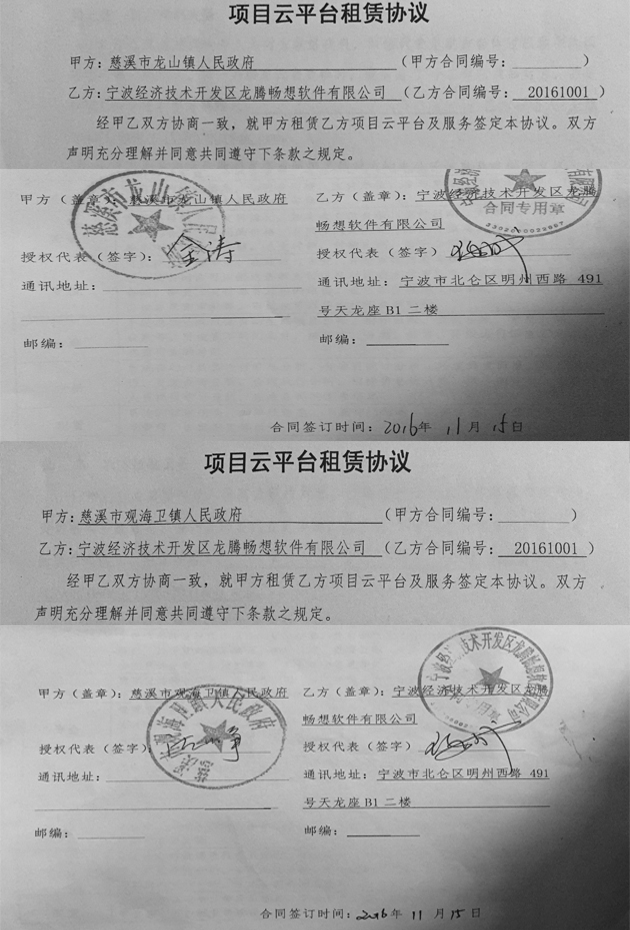 项目云平台租赁协议
甲方：慈溪市龙山镇人民政府（甲方合同编号：）
乙方：宁波经济技术开发区龙腾畅想软件有限公司（乙方合同编号：20161001）
经甲乙双方协商一致，就甲方租赁乙方项目云平台及服务签定本协议。双方
声明充分理解并同意共同遵守下条款之规定。
甲方（盖章）：慈溪市龙山镇人民政府
乙方（盖章）：宁波经济技术开发区龙腾
畅想软件有限公司
合同专用章
授权代表（签字）：
授权代表（签字）
通讯地址：
通讯地址：宁波市北仑区明州西路 491
号天龙座 B1 二楼
邮编：
邮编：
合同签订时间：2016年 11月 15日
项目云平台租赁协议
甲方：慈溪市观海卫镇人民政府（甲方合同编号：）
乙方：宁波经济技术开发区龙腾畅想软件有限公司（乙方合同编号：20161001）
经甲乙双方协商一致，就甲方租赁乙方项目云平台及服务签定本协议。双方
声明充分理解并同意共同遵守下条款之规定。
甲方（盖章）：慈溪市观海卫镇人民政府
乙方（盖章）：宁波经济技术开发区龙腾
畅想软件有限公司
授权代表（签字）：
授权代表（签字）
通讯地址：
通讯地址：宁波市北仑区明州西路 491
号天龙座 B1 二楼
邮编：
邮编：
合同签订时间：2016年 11月 15日